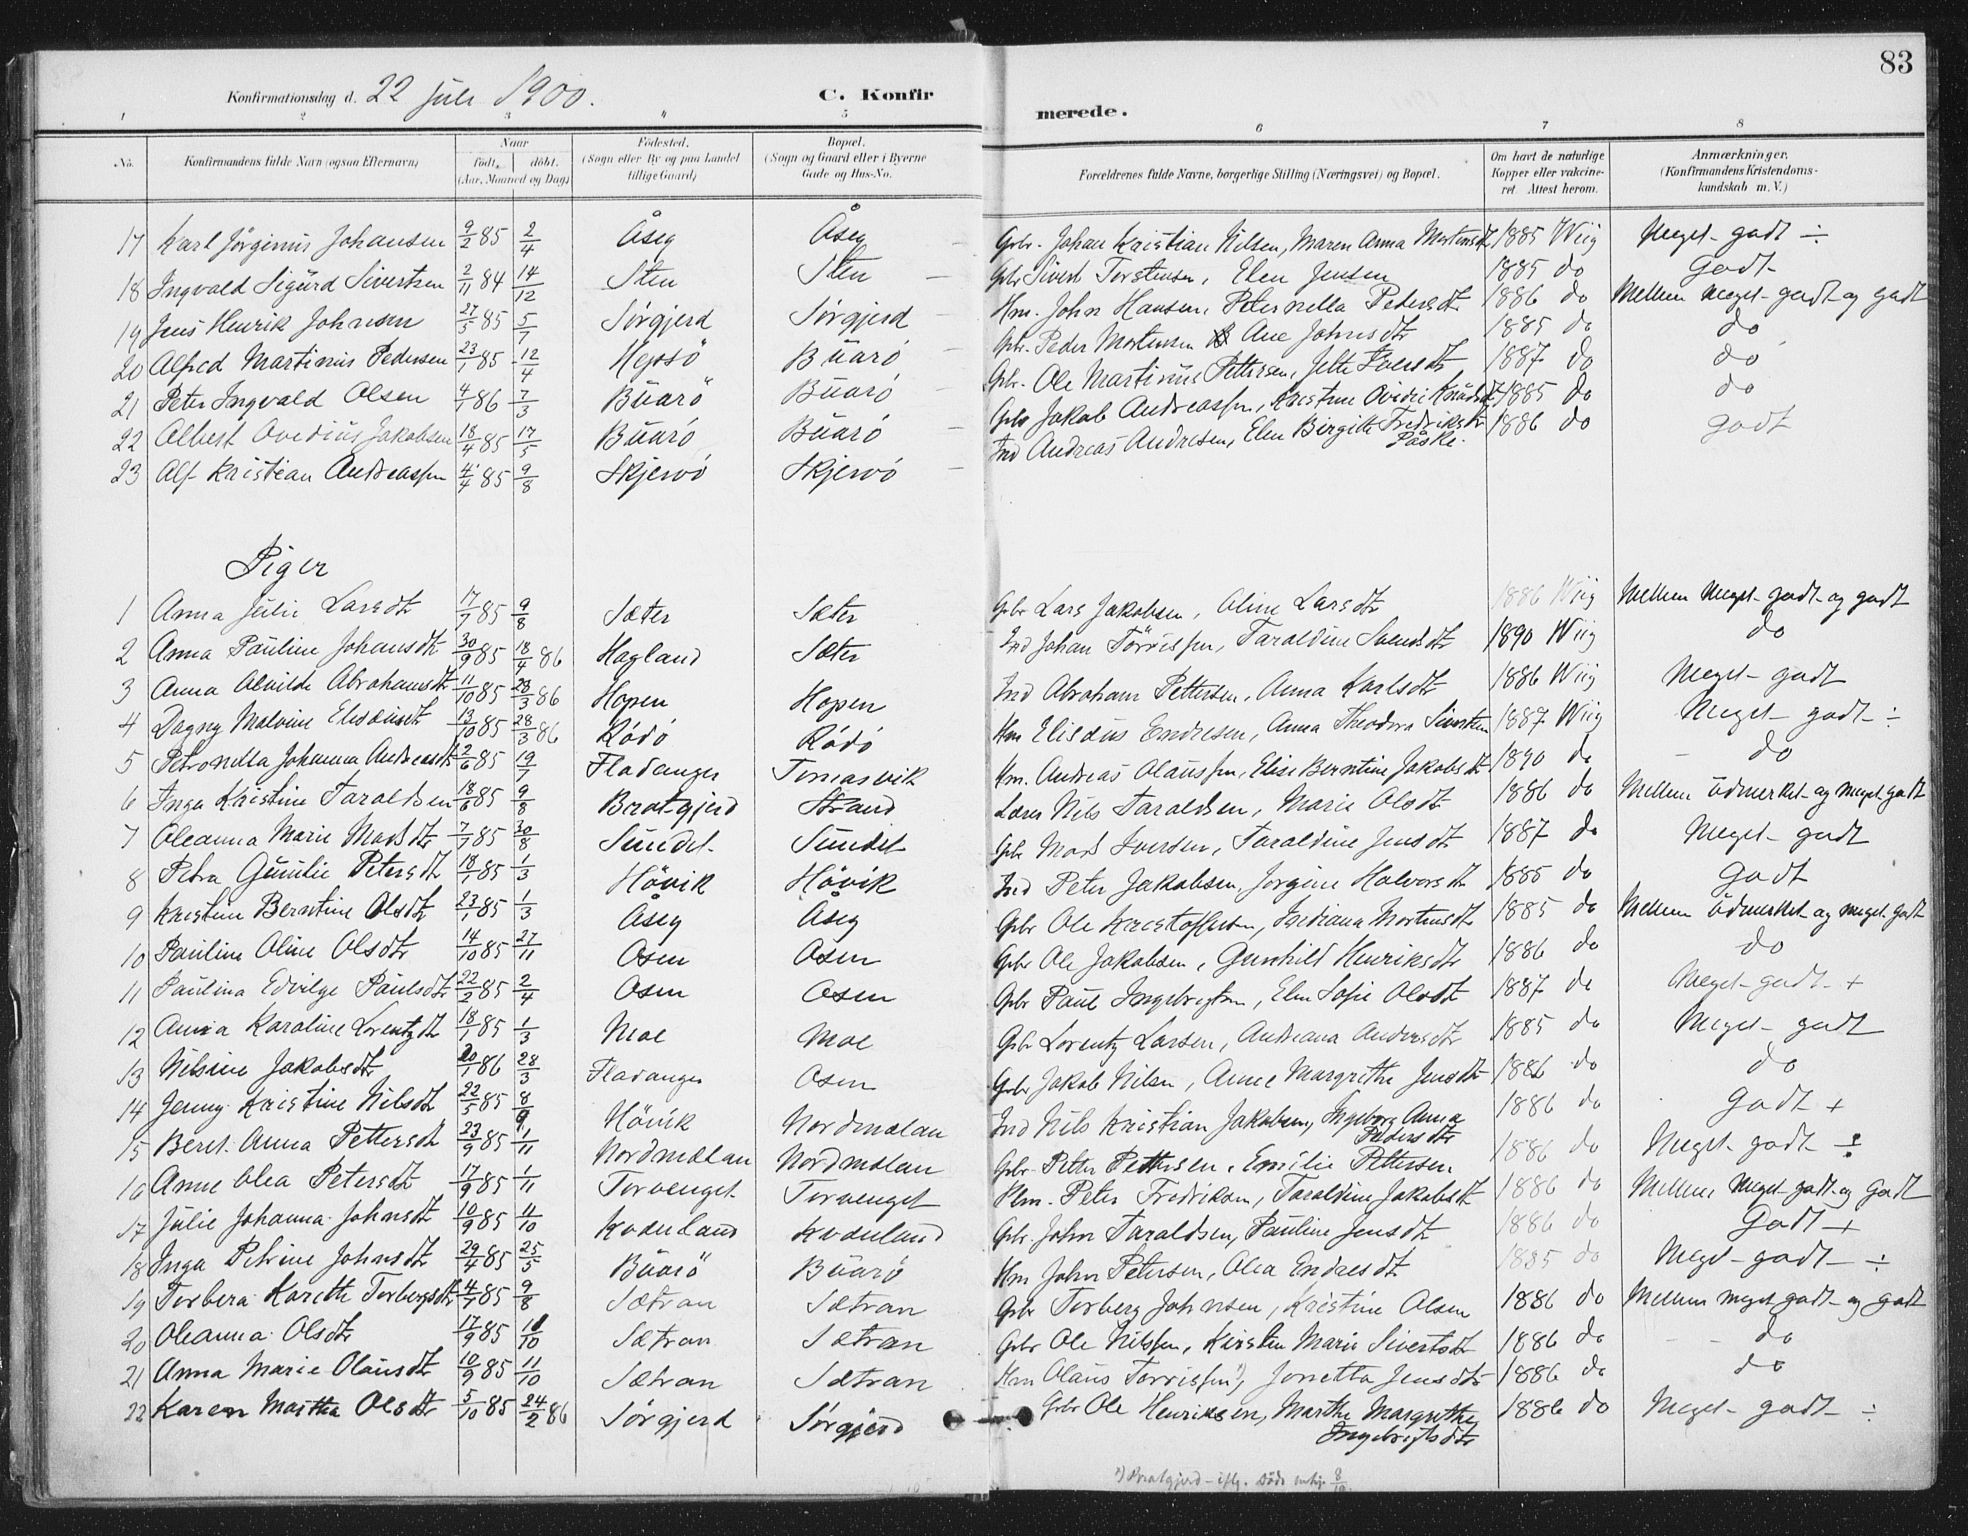 83
Konfirmationsdag d. 22 juli 1900. C. Konfirmerede.
1 2 3 4 5 6 7 8
No. Konfirmandens fulde Navn (ogsaa Efternavn) Naar født, døbt. (Aar, Maaned og Dag) Fødested. (Sogn eller By og paa Landet tillige Gaard) Bopæl. (Sogn og Gaard eller i Byerne Gade og Hus-No. Forældrenes fulde Navne, borgerlige Stilling (Næringsvei) og Bopæl. Om havt de naturlige Kopper eller vaccineret. Attest herom. Anmærkninger. (Konfirmandens Kristendomskundskab m. V.)
17 Karl Jörginus Johansen 9/2 85 2/4 Åseg Åseg Gbr. Johan Kristian Nilsen, Maren Anna Mortensdt 1885 Wiig Meget godt ÷
18 Ingvald Sigurd Sivertsen 2/11 84 14/12 Sten Sten Gbr Sivert Torstensen, Elen Jensen 1885 do Godt
19 Jens Henrik Johnsen 27/5 85 5/7 Sørgjerd Sørgjerd Hm. John Hansen, Peternella Pedersdt 1886 do Mellem meget godt og godt
20 Alfred Martinus Pedersen 23/1 85 12/4 Hepsö Buarö Gbr. Peder Mortensen Ane Johnsdtr 1885 do do
21 Peter Ingvald Olsen 4/1 86 7/3 Buarö Buarö Gbr. Ole Martinus Pettersen, Jette Iversdt 1887 do do
22 Albert Ovedius Jakobsen 18/4 85 17/5 Buarö Buarö Gbr Jakob Andreassen, Kristine Ovidie Knudsdt 1885 do do
23 Alf Kristian Andreassen 4/4 85 9/8 Skjervö Skjervö Ind Andreas Andresen, Elen Birgitte Fredriksdtr Påske. 1886 do godt
Piger
1 Anna Julie Larsdtr 17/7 85 9/8 Sæter Sæter Gbr Lars Jakobsen, Oline Larsdtr 1886 Wiig Mellem Meget godt og godt
2 Anna Pauline Johansdt 30/9 85 18/4 86 Hagland Sæter Ind Johan Törrissen, Taraldine Svendsdtr 1890 Wiig do
3 Anna Alvilde Abrahamsdt 11/10 85 28/3 86 Hopen Hopen Ind Abraham Pettersen, Anna Karlsdt 1886 Wiig Meget godt
4 Dagny Malvine Eliseusdt 13/10 85 28/3 86 Rödö Rödö Hm Eliseus Endresen, Anna Theodora Sivertsen 1887 Wiig Meget godt ÷
5 Petronella Johanna Andreasdt 2/6 85 19/7 Fladanger Tomasvik Hm. Andreas Olaussen, Elise Berntine Jakobsdt 1890 do – do
6 Inga Kristine Taraldsen 18/6 85 9/8 Bratgjerd Strand Lærer Nils Taraldsen, Marie Olsdt 1886 do Mellem Udmerket og meget godt
7 Oleanna Marie Madsdtr 7/7 85 30/8 Sundet Sundet Gbr Mads Iversen, Taraldine Jensdt 1887 do Meget godt
8 Petra Gunilie Petersdt 18/1 85 1/3 Hövik Hövik Ind Peter Jakobsen, Jorgine Halvorsdt 1885 do Godt
9 Kristine Berntine Olsdtr 23/1 85 1/3 Åseg Åseg Gbr Ole Kristoffersen, Indiana Mortensdt 1885 do Mellem Udmerket og meget godt
10 Pauline Oline Olsdtr 14/10 85 27/11 Osen Osen Gbr Ole Jakobsen, Gunhild Henriksdtr 1886 do do
11 Paulina Edvilge Paulsdtr 22/2 85 2/4 Osen Osen Gbr Paul Ingebrigtsen, Elen Sofie Olsdt 1887 do Meget godt +
12 Anna Karoline Lorentzdt 18/1 85 1/3 Moe Moe Gbr Lorentz Larsen, Andreana Andersdtr 1885 do Meget godt
13 Nilsine Jakobsdtr 20/1 86 28/3 Fladanger Osen Gbr Jakob Nilsen, Anne Margrethe Jensdt 1886 do do
14 Jenny Kristine Nilsdt 22/5 85 8/9 Hövik Nordmelan Ind Nils Kristian Jakobsen, Ingeborg Anna Pedersdtr 1886 do Godt +
15 Beret Anna Pettersdt 23/9 85 1/11 Nordmelan Nordmelan Gbr. Petter Pettersen, Emilie Pettersen 1886 do Meget godt ÷
16 Anne Olea Petersdt 17/9 85 1/11 Torvenget Torvenget Hm. Peter Fredriksen, Taraldine Jakobsdt 1886 do Mellem Meget godt og Godt
17 Julie Johanna Johnsdt 10/9 85 11/10 Kvderland Kvderland Gbr. John Taraldsen, Pauline Jensdt 1886 do Godt +
18 Inga Petrine Johnsdtr 29/4 85 25/5 Buarö Buarö Hm John Petersen, Olea Endresdt 1885 do Meget godt – ÷
19 Torbera Karethe Torbergsdtr 4/7 85 9/8 Sætran Sætran Gbr Torberg Johnsen, Kristine Olsen 1886 do Mellem meget godt og godt
20 Oleanna Olsdtr 17/9 85 11/10 Sætran Sætran Gbr Ole Nilssen, Kirsten Marie Sivertsdt 1886 do – – do
21 Anna Marie Olausdt 10/9 85 11/10 Sætran Sætran Hm Olaus Torrissen¹), Jonetta Jensdtr 1886 do do
22 Karen Martha Olsdt 5/10 85 24/2 86 Sørgjerd Sørgjerd Gbr Ole Henriksen, Marthe Margrethe Ingebrigtsdtr 1886 do Meget godt – ÷
¹) Bratgjerd – iflg. 8/10.